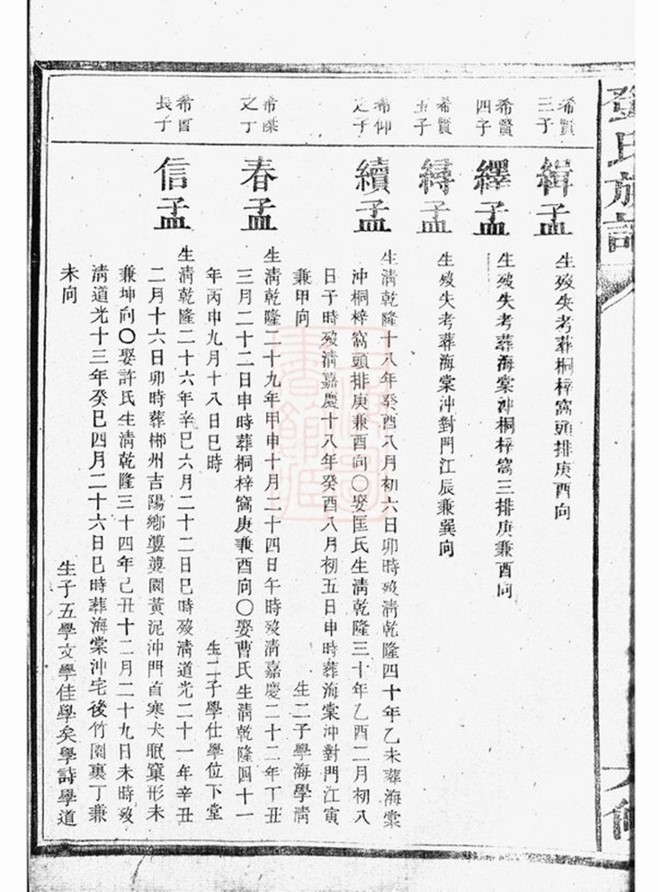 氏族
希賢
三子
緝孟
生歿失考葬桐梓窩頭排庚酉向
希賢
四子
繹孟
生歿失考葬海棠冲桐梓窩三排庚兼酉向
希賢
五子
孟
生歿失考葬海棠冲對門江辰兼巽向
希仰
之子
續孟
生清乾隆十八年癸酉八月初六日卯時歿清乾隆四十年乙未葬海棠
冲桐梓窩頭排庚兼酉向○娶匡氏生清乾隆三十年乙酉二月初八
日子時歿清嘉慶十八年癸酉八月初五日申時葬海棠冲對門江寅
兼甲向 生二子學海學洪
希
之丁
春孟
生清乾隆二十九年甲申十月二十四日午時歿清嘉慶二十二年丁丑
三月二十二日申時葬桐梓窩庚兼酉向○娶曹氏生清乾隆四十一
年丙申九月十八日巳時 生二子學仕學位下堂
希
長子
信孟
生清乾隆二十六年辛巳六月二十二日巳時歿清道光二十一年辛丑
二月十六日卯時葬郴州吉陽鄉園黃泥沖門首寒犬眠窠形未
兼坤向○娶許氏生清乾隆三十四年己丑十二月二十九日未時歿
清道光十三年癸巳四月二十六日巳時葬海棠冲宅後竹園裏丁兼
未向 生子五學文學佳學矣學詩學道